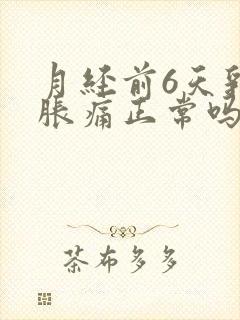 月经前6天
胀痛正常吗
茶布多多